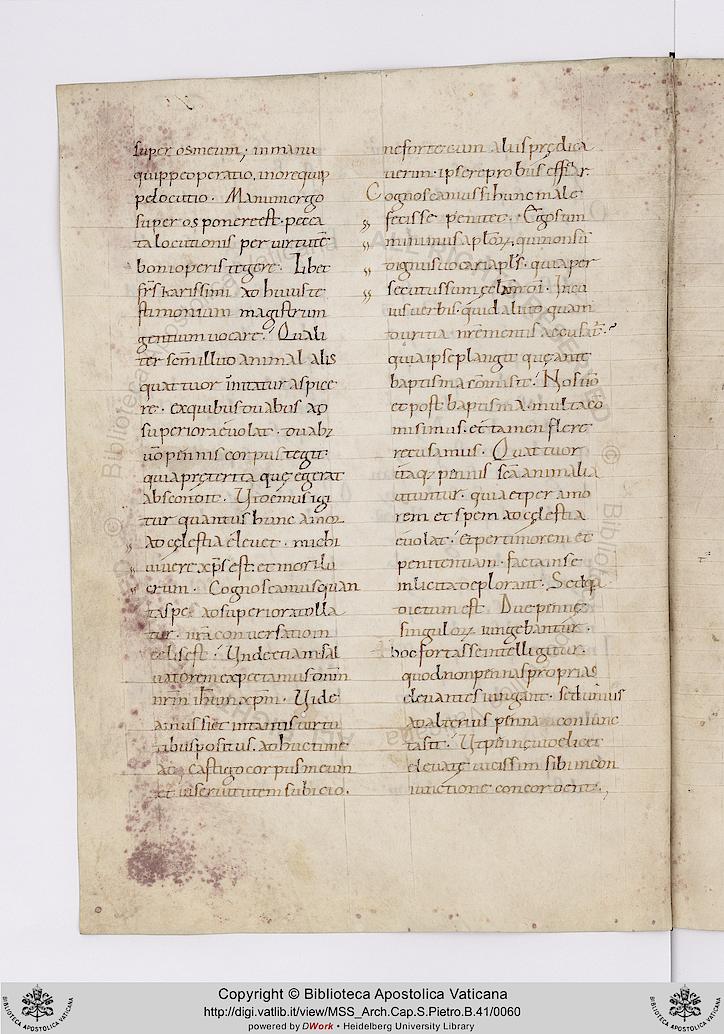 super os meum, in manu
quippe operatio, in ore quip
pe locutio. Manum ergo
super os ponere est. pecca
ta locutionis per virtutē
boni operis tegere. Libet
fr̄s karissimi ad huius te
stimonium magistrum
gentium vocare. Quali
ter sc̄m illud animal alis
quattuor
re. ex quibus duabus ad
superiora evolat. duab;
v̄o pennis corpus tegit.
quia preterita quę egerat
abscondit. Videamus igi
tur quantus hunc amor
ad cęlestia elevet. michi
vivere xp̄s est. et mori lu
crum. Cognoscamus quan
ta spe ad superiora tolla
tur. nr̄a conversatio in
celis est. Unde etiam sal
vatorem expectamus dn̄m
nr̄m ih̄um xp̄m. Vide
amus si et in tantis virtu
tibus positus. ad huc time
at. Castigo corpus meum
et in servitutem subicio.
ne forte cum aliis prędica
verim. ipse reprobus efficiar.
Cognoscamus si hunc male
fecisse penitet. Ego sum
minimus ap̄lor̄, qui non sū
dignus vocari ap̄ls. quia per
secutus sum ęcl̄am dī. In cu
ius verbis. quid aliud quam
duritia nr̄e mentis accusat̄?
quia ipse plangit quę ante
baptisma cōmisit. Nos v̄o
et post baptisma. multa co
misimus. et tamen flere
recusamus. Quattuor
itaq; pennis sc̄a animalia
utuntur. quia et per amo
rem et spem ad cęlestia
evolat. et per timorem et
penitentiam. facta in se
inlicita deplorant. Sed qa
dictum est. Duę pennę
singulor̄ iungebantur.
hoc fortasse intelligitur.
quod non pennas proprias
elevantes iungant. sed unius
ad alterius penna coniunc
ta sit. Ut pennę videlicet
elevatę vicissim sibi in con
iunctione concordent.,
Copyright © Biblioteca Apostolica Vaticana
http://digi.vatlib.it/view/MSS_Arch.Cap.S.Pietro.B.41/0060
powered by DWork • Heidelberg University Library